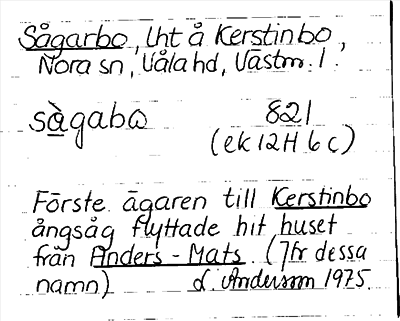 Sågarbo, Lht å Kerstinbo,
Nora sn, Våla hd, Västm. l.
sàgabω 821
(ek 12H 6c)
Förste ägaren till Kerstinbo
ångsåg flyttade hit huset
från Anders-Mats. (Jfr dessa
namn) L. Andersson 1975.